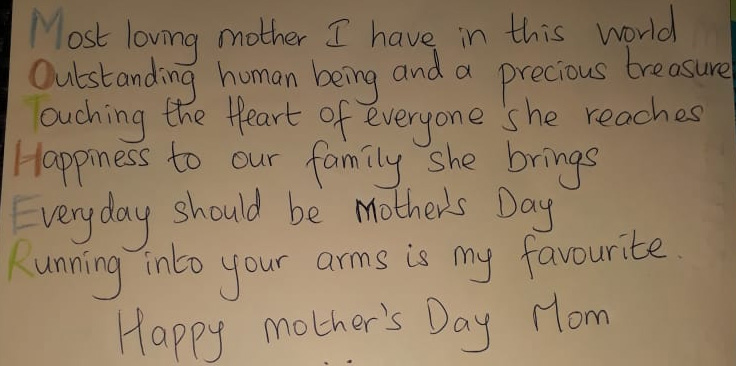 Most loving mother I have in this world
Outstanding human being and a precious treasure
Touching the Heart of everyone she reaches
Happiness to our family she brings
Everyday should be Mother's Day
Running into your arms is my favourite.
Happy mother's Day Mom